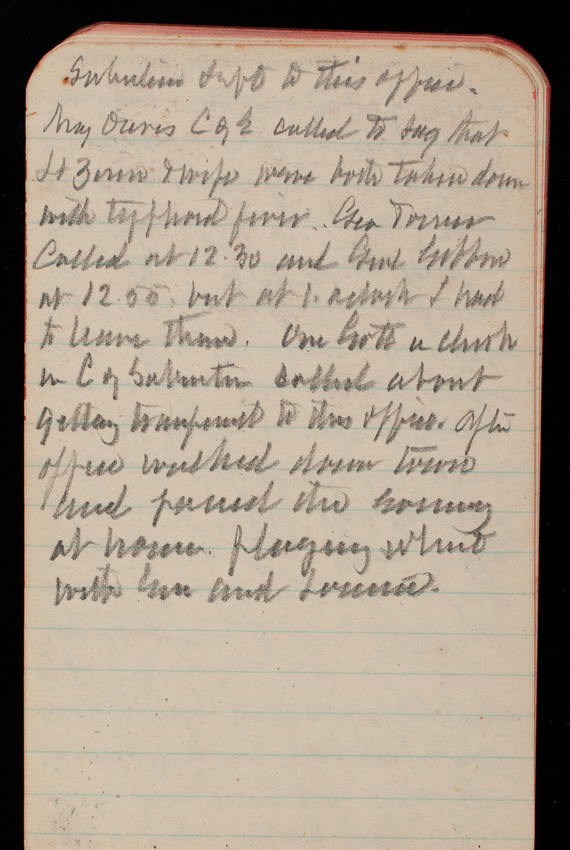 Subsistence Dept to this office.
Maj Davis C of E called to say that
Lt Zinn & wife were both taken down
with typhoid fever. Geo Turner
Called at 12.30 and Genl Gibbon
at 12.55. but at 1. oclock I had
to leave them. One Gotts a clerk
in C of Subsisten called about
getting transferred to this office. After
office walked down town
and passed the evening
at home. Playing whist
with Gen and